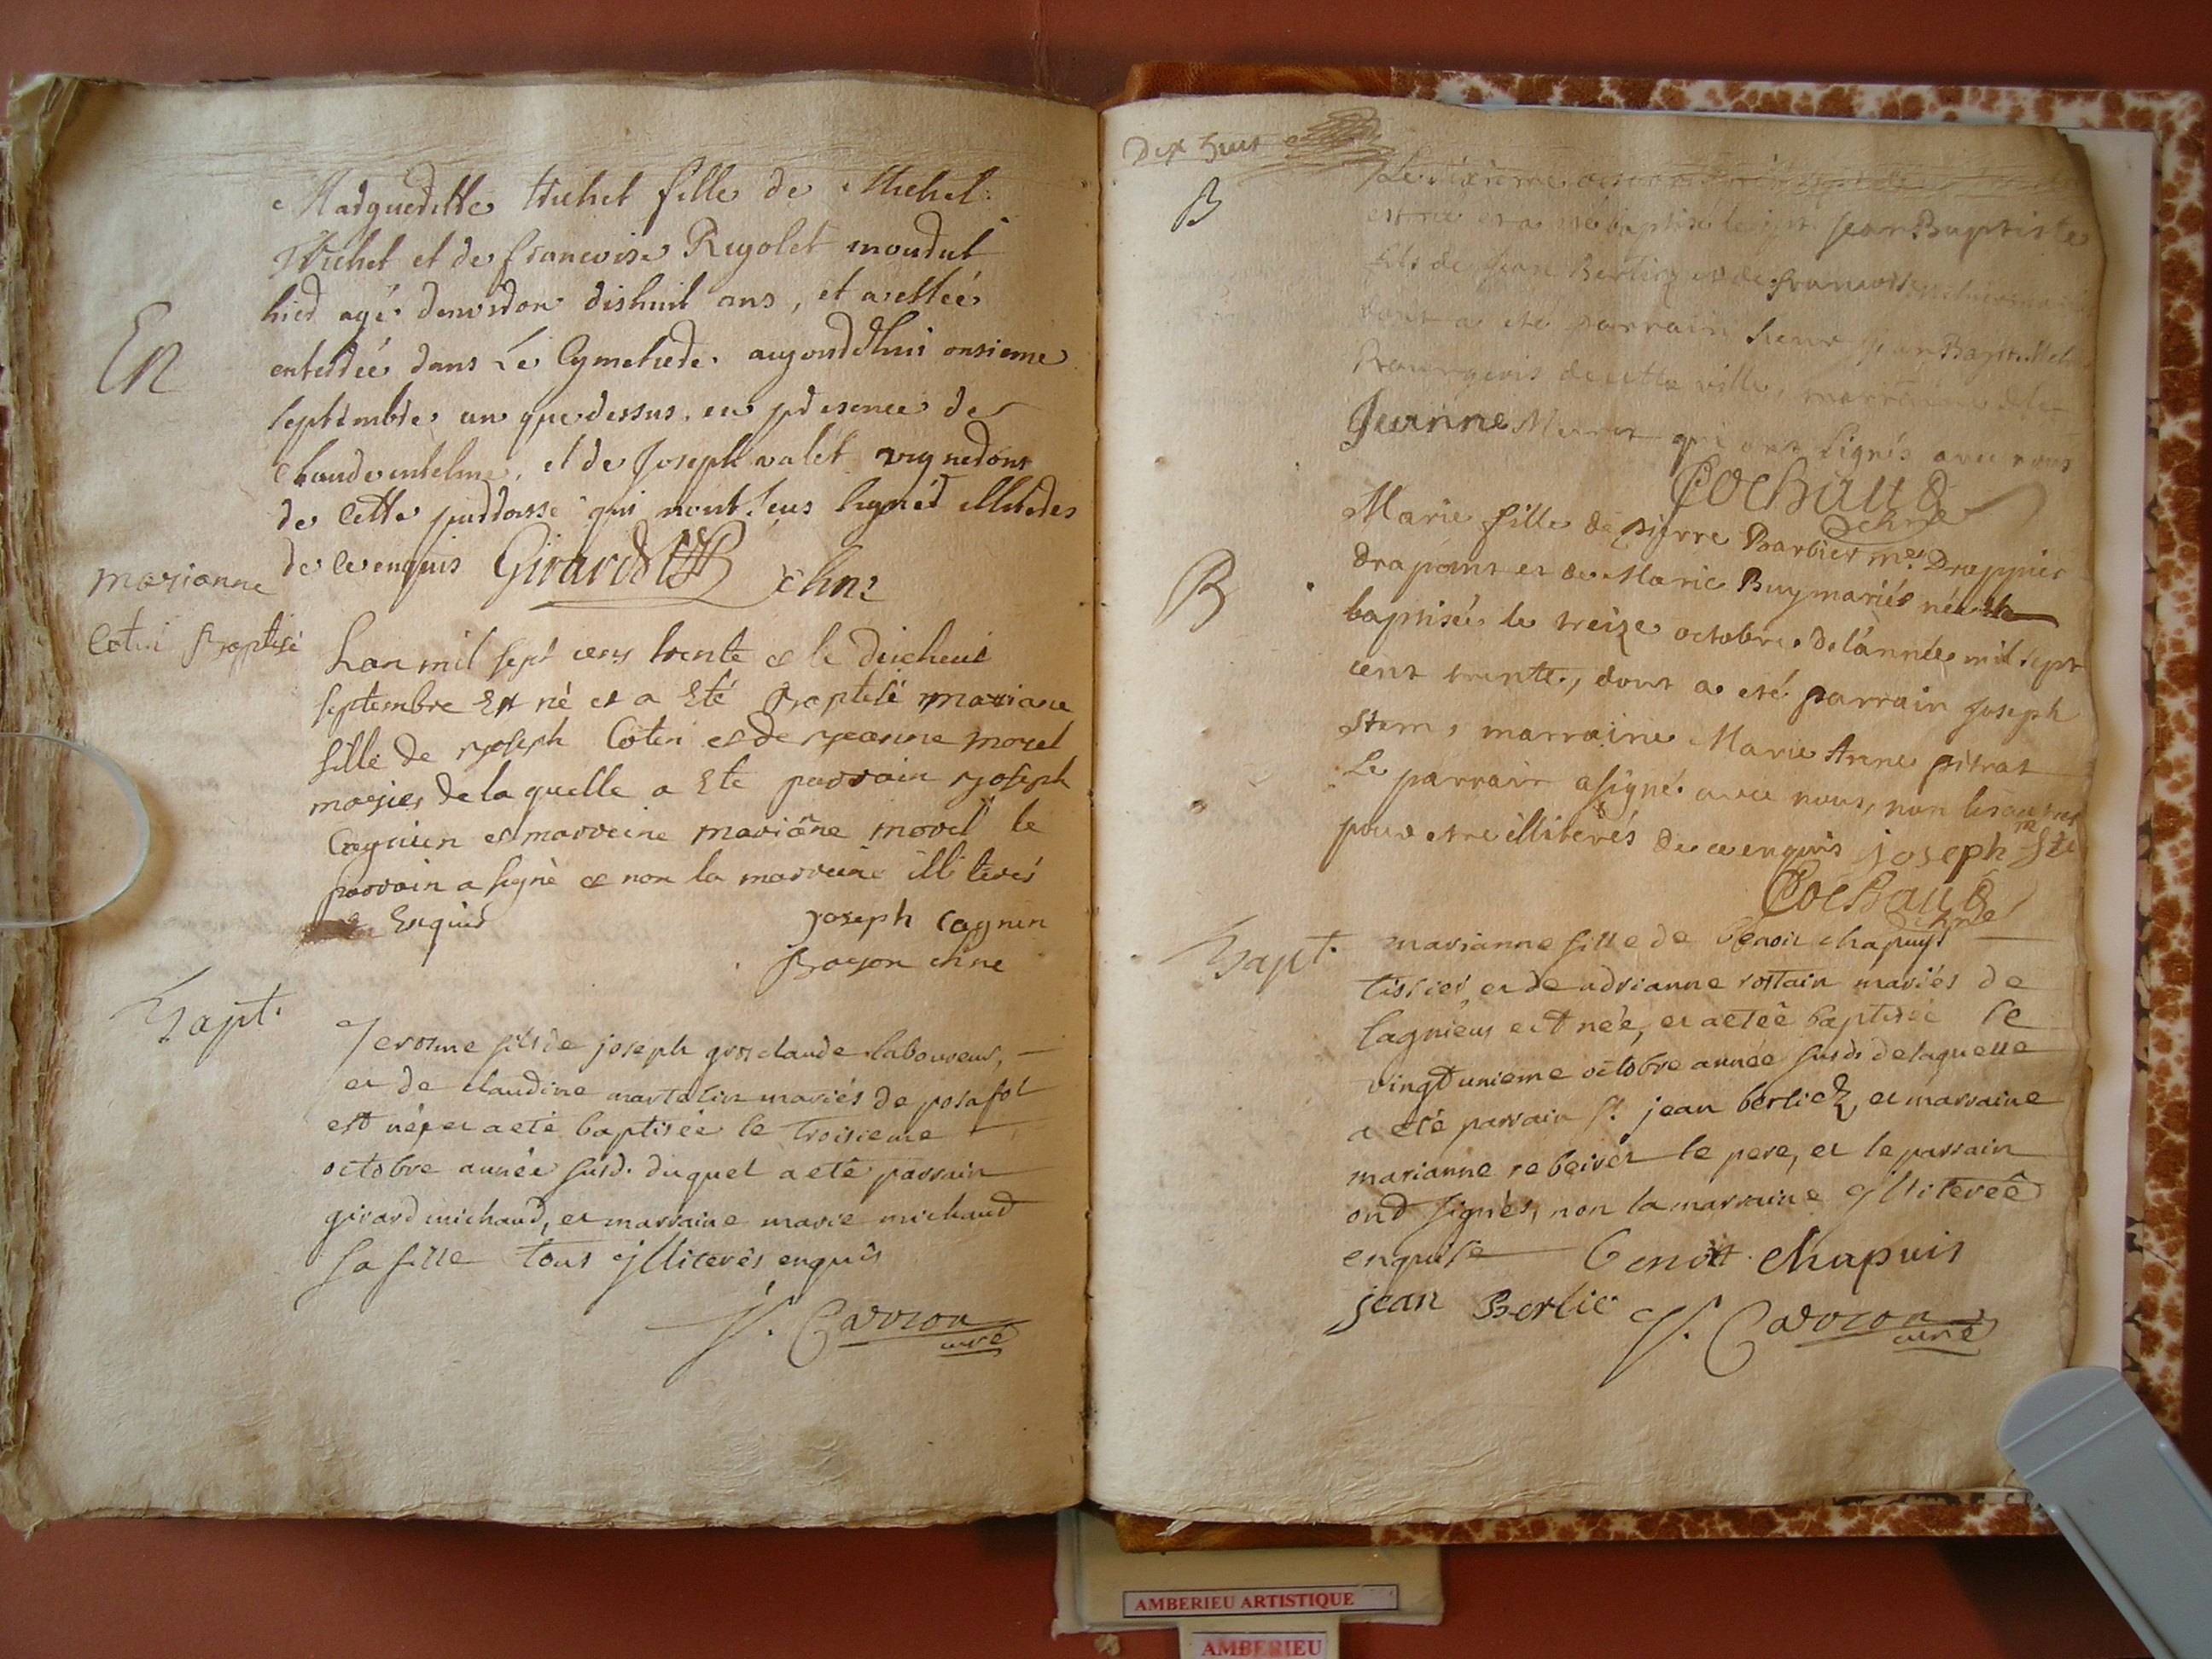 Margueritte Michel fille de Michel
Michel et de francoise Rigolet mourut
hier agé denviron dishuit ans, et a estéé
enterréé dans Le Cymetiere aujourdhui onsieme
En
septembre an que dessus, en presence de
et de Joseph valet vignerons
de Cette parroisse qui nont sceus signer illiteres
de ce enquis Girard
marianne
Cotin Baptisé
Lan mil sept cens trente & le dixhuit
septembre Est né et a Eté Baptisé mariane
fille de joseph Cotin et de jeanne morel
mariés de laquelle a Eté parrain joseph
Cagnien et marreine mariane morel le
parrain a signé & non la marreine illiterés
Enquis
joseph cagnin
Bapt.
Jerosme fils de joseph grosclaude laboureur,
et de claudine martelin mariés de posafol
est né, et a eté baptisée le troisieme
octobre année susd. duquel a eté parrain
girard michaud, et marraine marie michaud
sa fille tous illiterés enquis
Carron
curé
Dix huit
B
est né et a été baptisé Jean Baptiste
fils de Jean Berliez et de francoise
dont a ete parrain sieur Jean Bapt.
Bourgeois de cette ville, marraine
Jeanne qui ont signés avec nous
Cochaud
B
Marie fille de pierre Barbier me. Drappier
drapant et de Marie Buy mariés née
baptisée le treize octobre de l'année mil sept
cent trente, dont a eté parrain Joseph
Stern, marraine Marie Anne pitrat
Le parrain a signé avec nous, non les autres
pour etre illiterés de ce enquis joseph
Cochaud
Bapt.
marianne fille de benoit chapuys
tissier, et de adrianne rostain mariés de
lagnieu est née, et a etéé baptisée le
vingt unieme octobre année susd. de laquelle
a eté parrain Sr. jean berliez, et marraine
marianne rebeirer le pere, et le parrain
ont signés, non la marraine illiteréé
enquise Benoit chapuis
jean Berlie Carron
curé
AMBERIEU ARTISTIQUE
AMBERIEU